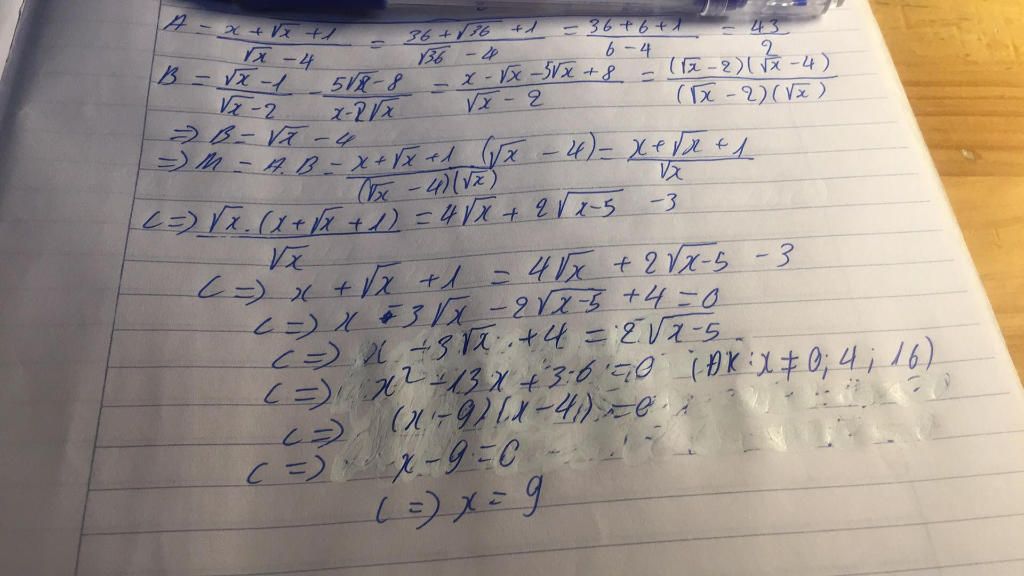 A = (x + √x + 1)/(√x - 4) = (36 + √36 + 1)/(√36 - 4) = (36 + 6 + 1)/(6 - 4) = 43/2
B = (√x - 1)/(√x - 2) - (5√x - 8)/(x - 2√x) = (x - √x - 5√x + 8)/(√x - 2) = ((√x - 2)(√x - 4))/((√x - 2)(√x))
=> B = √x - 4
=> M = A.B = (x + √x + 1)/((√x - 4)(√x)) (√x - 4) = (x + √x + 1)/√x
(=) (√x.(x + √x + 1))/√x = 4√x + 2√x-5 - 3
(=) x + √x + 1 = 4√x + 2√x-5 - 3
(=) x - 3√x - 2√x-5 + 4 = 0
(=) x - 3√x + 4 = 2√x-5
(=) x² - 13x + 36 = 0 (ĐK: x ≠ 0; 4; 16)
(=) (x - 9)(x - 4) = 0
(=) x - 9 = 0
(=) x = 9